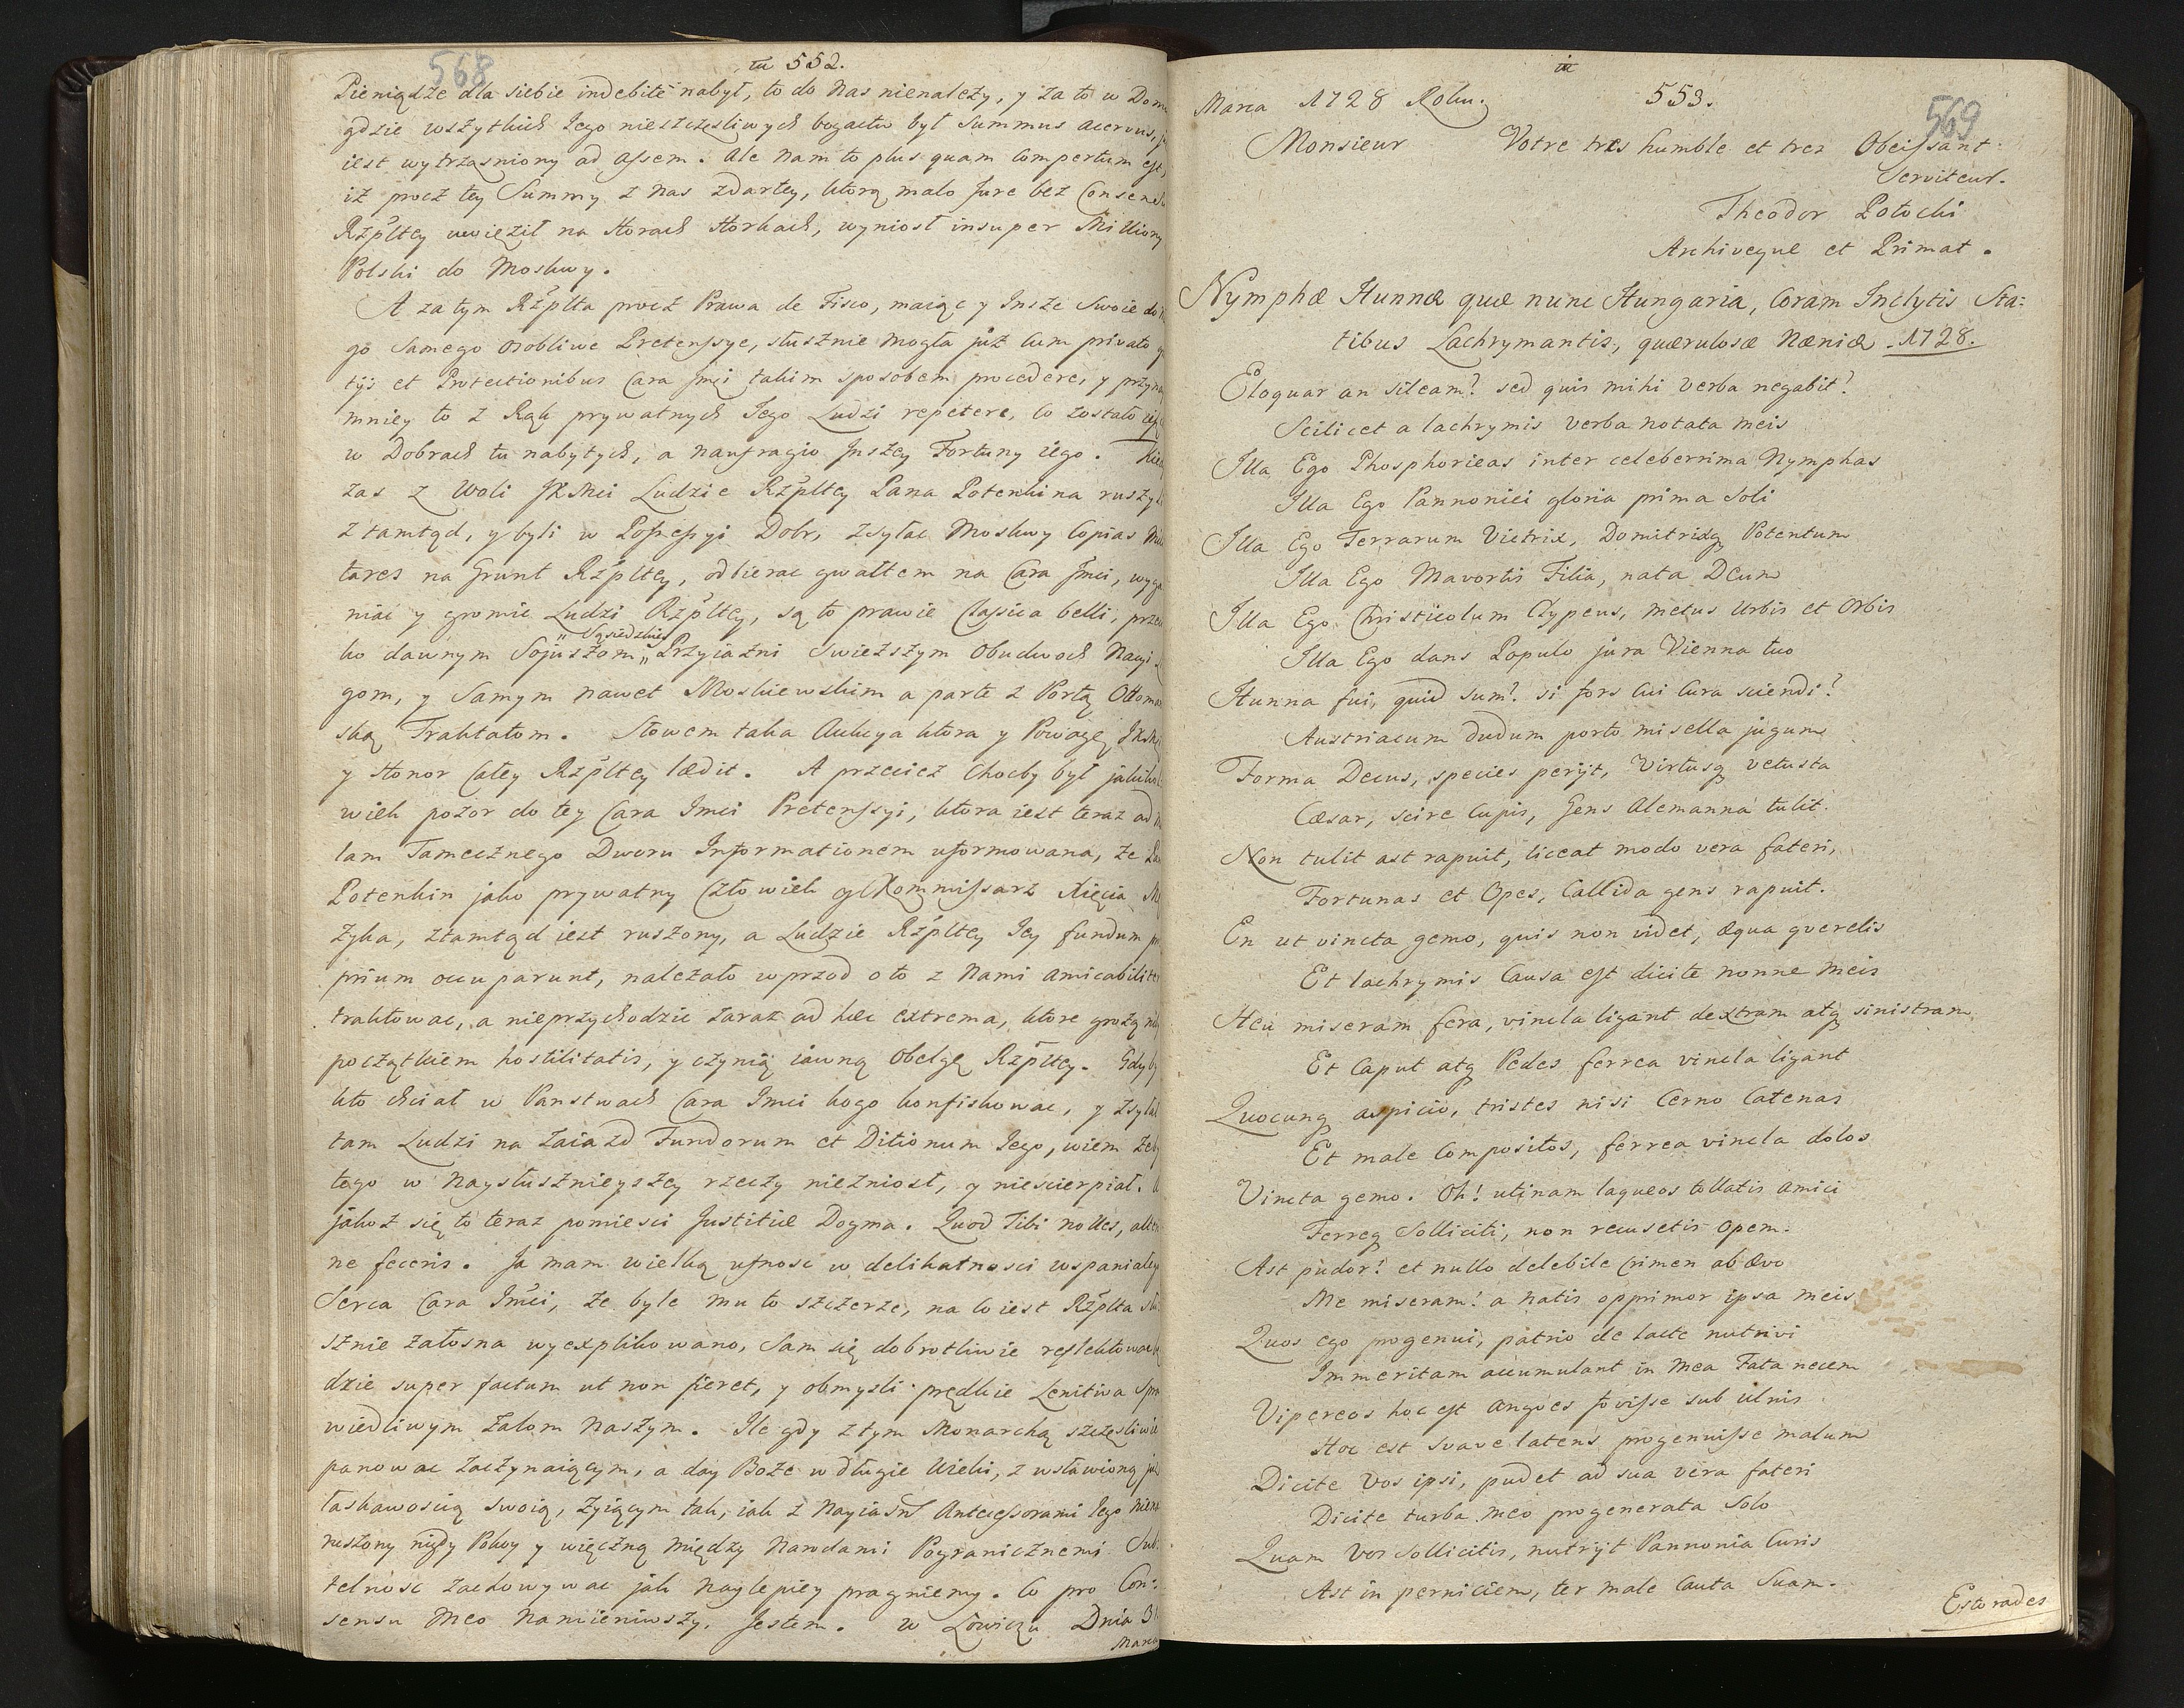 568
552.
Pieniądze dla siebie indebitè nabył, to do Nas nienależy, y za to w Domu
gdzie wszytkich Jego nieszczęsliwych bogactw był Summus acervus,
iest wytrząsniony ad assem. Ale Nam to plus quam Compertum est,
iż procz tey Summy z Nas zdartey, ktorą malo Jure bez Consensu
Rzpltey uwięził na Horach Horkach, wyniosł insuper Milliony
Polski do Moskwy.
A zatym Rzplta procz Prawa de Fisco, maiąc y Insze Swoie do
go Samego osobliwe Pretensye, słusznie mogła już cum privato
tijs et Protectionibus Cara Jmci takim sposobem procedere, y przynay
mniey to z Rąk prywatnych Jego Ludzi repetere, co zostało
w Dobrach tu nabytych, a naufragio Inszey Fortuny iego.
zas z Woli JKMci Ludzie Rzpltey Pana Potenkina ruszyli
ztamtąd, y byli w Possessyi Dobr, zsyłac Moskwy Copias Mili
tares na Grunt Rzpltey, odbierac gwałtem na Cara Jmci, wyga
niac y gromic Ludzi Rzpltey, są to prawie Classica belli, przeciw
ko dawnym Sojuszom „ Sąsiedzkiey „ Przyiazni Swieższym Obudwoch Nacyi
gom, y Samym nawet Moskiewskim a parte z Portą Ottomań
ską Traktatom. Słowem taka Akcya ktora y Powagę JKMci
y Honor Całey Rzpltey lædit. A przeciez Chocby był jakikol
wiek pozor do tey Cara Jmci Pretensyi, ktora iest teraz ad
lam Tamecznego Dworu Informationem uformowana, że Pan
Potenkin jako prywatny Człowiek y Kommissarz Xięcia
żyka, ztamtąd iest ruszony, a Ludzie Rzpltey Jey fundum pro
prium occuparunt, należało wprzod o to z Nami amicabiliter
traktowac, a nieprzychodzic zaraz ad hæc extrema, ktore grożą
początkiem hostilitatis, y czynią iawną Obelgę Rzpltey. Gdyby
kto chciał w Panstwach Cara Jmci kogo konfiskowac, y zsyłał
tam Ludzi na Zaiazd Fundorum et Ditionum Jego, wiem żeby
tego w Naysłusznieyszey rzeczy niezniosł, y niescierpiał.
jakoż się to teraz pomiesci Justitiæ Dogma. Quod Tibi nolles, alteri
ne feceris. Ja mam wielką ufnosc w delikatnosci wspaniałey
Serca Cara Jmci, że byle mu to szczerze, na co iest Rzplta słu
sznie żałosna wyexplikowano, Sam się dobrotliwie reflektowac bę
dzie super factum ut non fieret, y obmysli prędkie Lenitiva Spra
wiedliwym Zalom Naszym. Ile gdy z tym Monarchą szczęsliwie
panowac Zaczynaiącym, a day Boże w długie Wieki, z wsławioną
łaskawoscią swoią, żyiącym tak, iak z Nayiasn Antecessorami Jego Niena
ruszony nigdy Pokoy y więczną między Narodami Pogranicznemi Sub
telnosc Zachowywac jak Naylepiey pragniemy. Co pro Con:
sensu Meo Namieniwszy. Jestem. w Łowiczu Dnia 31
Marca
569
553.
Marca 1728 Roku.
Monsieur Votre tres humble et trez Obeissant
Serviteur.
Theodor Potocki
Archiveque et Primat.
Nymphæ Hunnæ quæ nunc Hungaria, Coram Inclytis Sta:
tibus Lachrymantis, quærulosæ Næniæ 1728.
Eloquar an sileam? sed quis mihi verba negabit?
Scilicet a lachrymis verba notata meis
Illa Ego Phosphorieas inter celeberrima Nymphas
Illa Ego Pannonici gloria prima Soli
Illa Ego Terrarum Victrix, Domitrixq Potentum
Illa Ego Mavortis Filia, nata Deum
Illa Ego Christicolum Clypeus, metus Urbis et Orbis
Illa Ego dans Populo jura Vienna tuo
Hunna fui, quid sum? si fors cui Cura sciendi?
Austriacum dudum porto misella jugum
Forma Decus, species perijt, Virtusq vetusta
Cæsar, scire Cupis, Gens Alemanna tulit.
Non tulit ast rapuit, liceat modo vera fateri,
Fortunas et Opes, Callida gens rapuit.
En ut vincta gemo, quis non videt, æqua qverelis
Et lachrymis Causa est dicite nonne meis
Heu miseram fera, vincla ligant dextram atq sinistram
Et Caput atq Pedes ferrea vincla ligant
Quocunq aspicio, tristes nisi Cerno Catenas
Et male Compositos, ferrea vincla dolos
Vincta gemo. Oh! utinam laqueos tollatis amici
Ferreq Solliciti, non recusetis Opem.
Ast pudor! et nullo delebile Crimen ab ævo
Me miseram! a Natis opprimor ipsa meis
Quos ego progenui, patrio de lacte nutrivi
Immeritam accumulant in Mea Fata necem
Vipereos hoc est Angves fovisse sub ulnis
Hoc est svave latens progenuisse malum
Dicite Vos ipsi, pudet ad sua vera fateri
Dicite turba meo progenerata Solo
Quam Vos Sollicitis, nutrijt Pannonia Curis
Ast in perniciem, ter male Cauta Suam.
Estorades